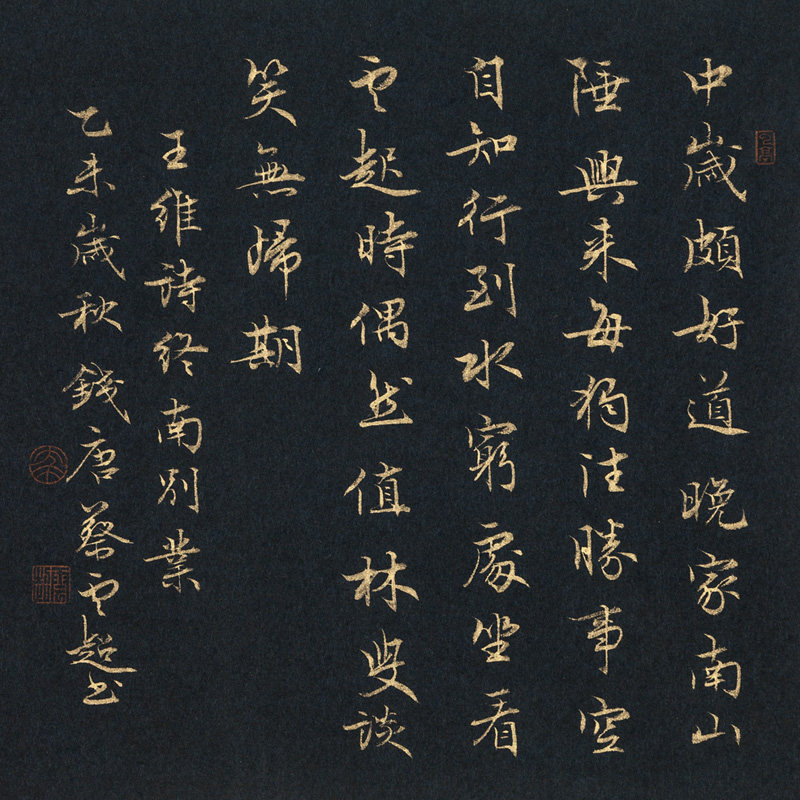 中歲頗好道晚家南山
陲興来每獨往勝事空
自知行到水窮處坐看
雲起時偶然值林叟談
笑無歸期
王維詩終南別業
乙未歲秋錢唐蔡雲超书